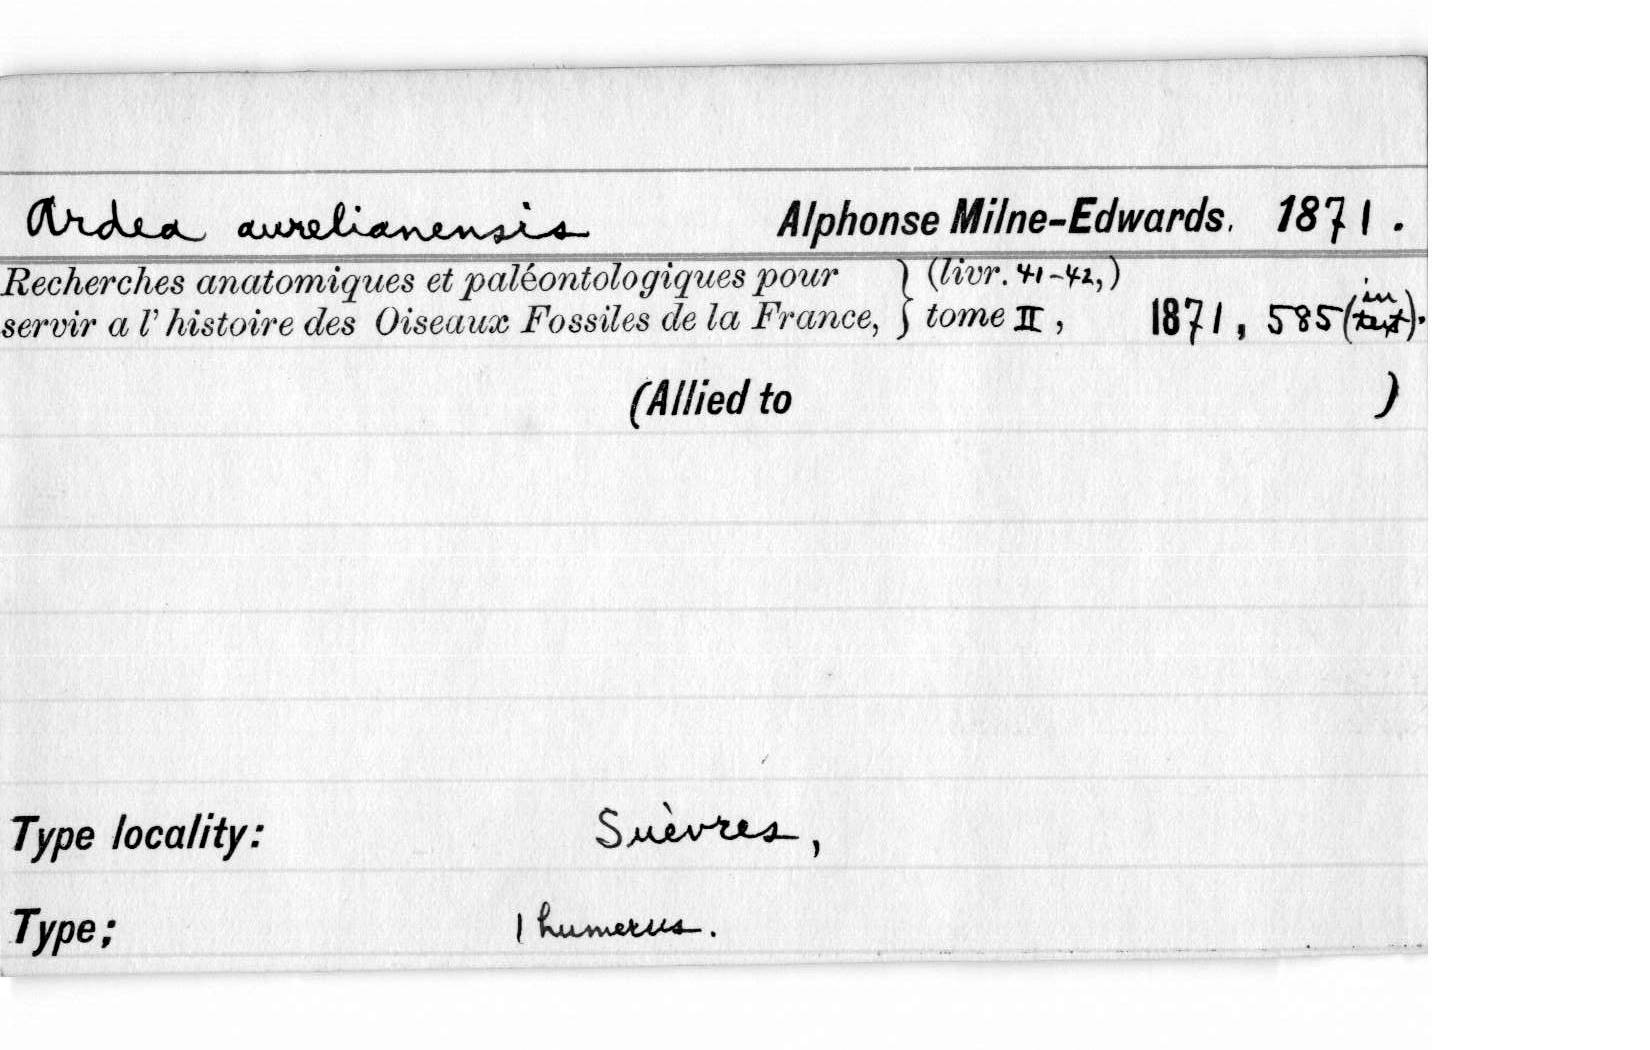 Ardea aurelianensis Alphonse Milne-Edwards. 1871.
Recherches anatomiques et paléontologiques pour } (livr. 41-42,)
servir a l' histoire des Oiseaux Fossiles de la France, } tome II, 1871, 585 (in text).
(Allied to )
Type locality: Suèvres,
Type; 1 humerus.